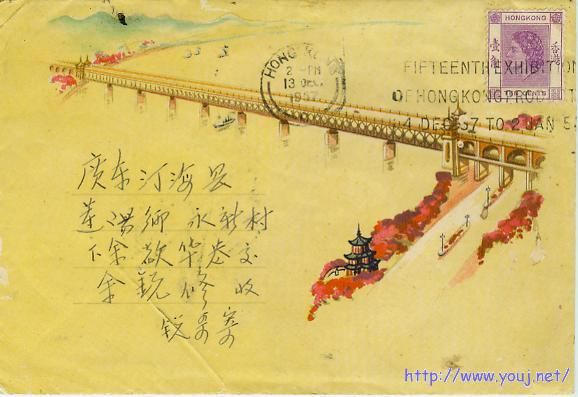 HONGKONG
壹角
香港
TEN CENTS
HONG KONG
2 - PM
13 DEC
1957
FIFTEENTH EXHIBITION
OF HONG KONG PRODUCT
4 DEC 57 TO 2 JAN 5
广东汀海县
莲洪乡永新村
下余 华 交
余锐修收
锐 寄
http://www.youj.net/